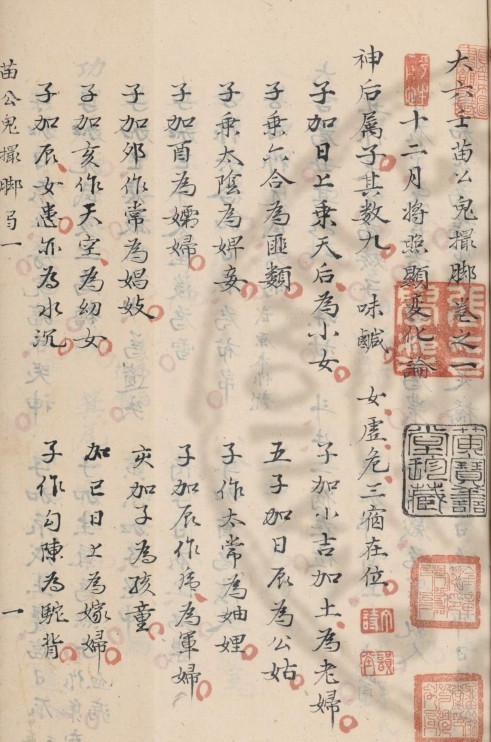 大六壬苗公鬼撮脚卷之一
十二月將照顯变化論
神后属子其数九 味鹹 女虛危三宿在位
子加日上乘天后為小女 子加小吉加土為老婦
子乘六合為匪類 五子加日辰為公姑
子乘太陰為婢妾 子作太常為妯娌
子加酉為孀婦 子加辰作為軍婦
子加卯作常為娼妓 亥加子為孩童
子加亥作天空為幼女 加巳日上為嫁婦
子加辰女患亦為水沉 子作勾陳為駝背
苗公鬼撮脚 一
一
黄寶善堂珍藏